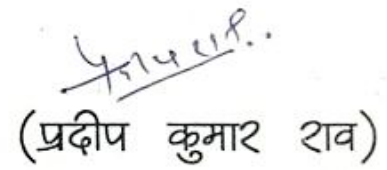 (प्रदीप कुमार राव)